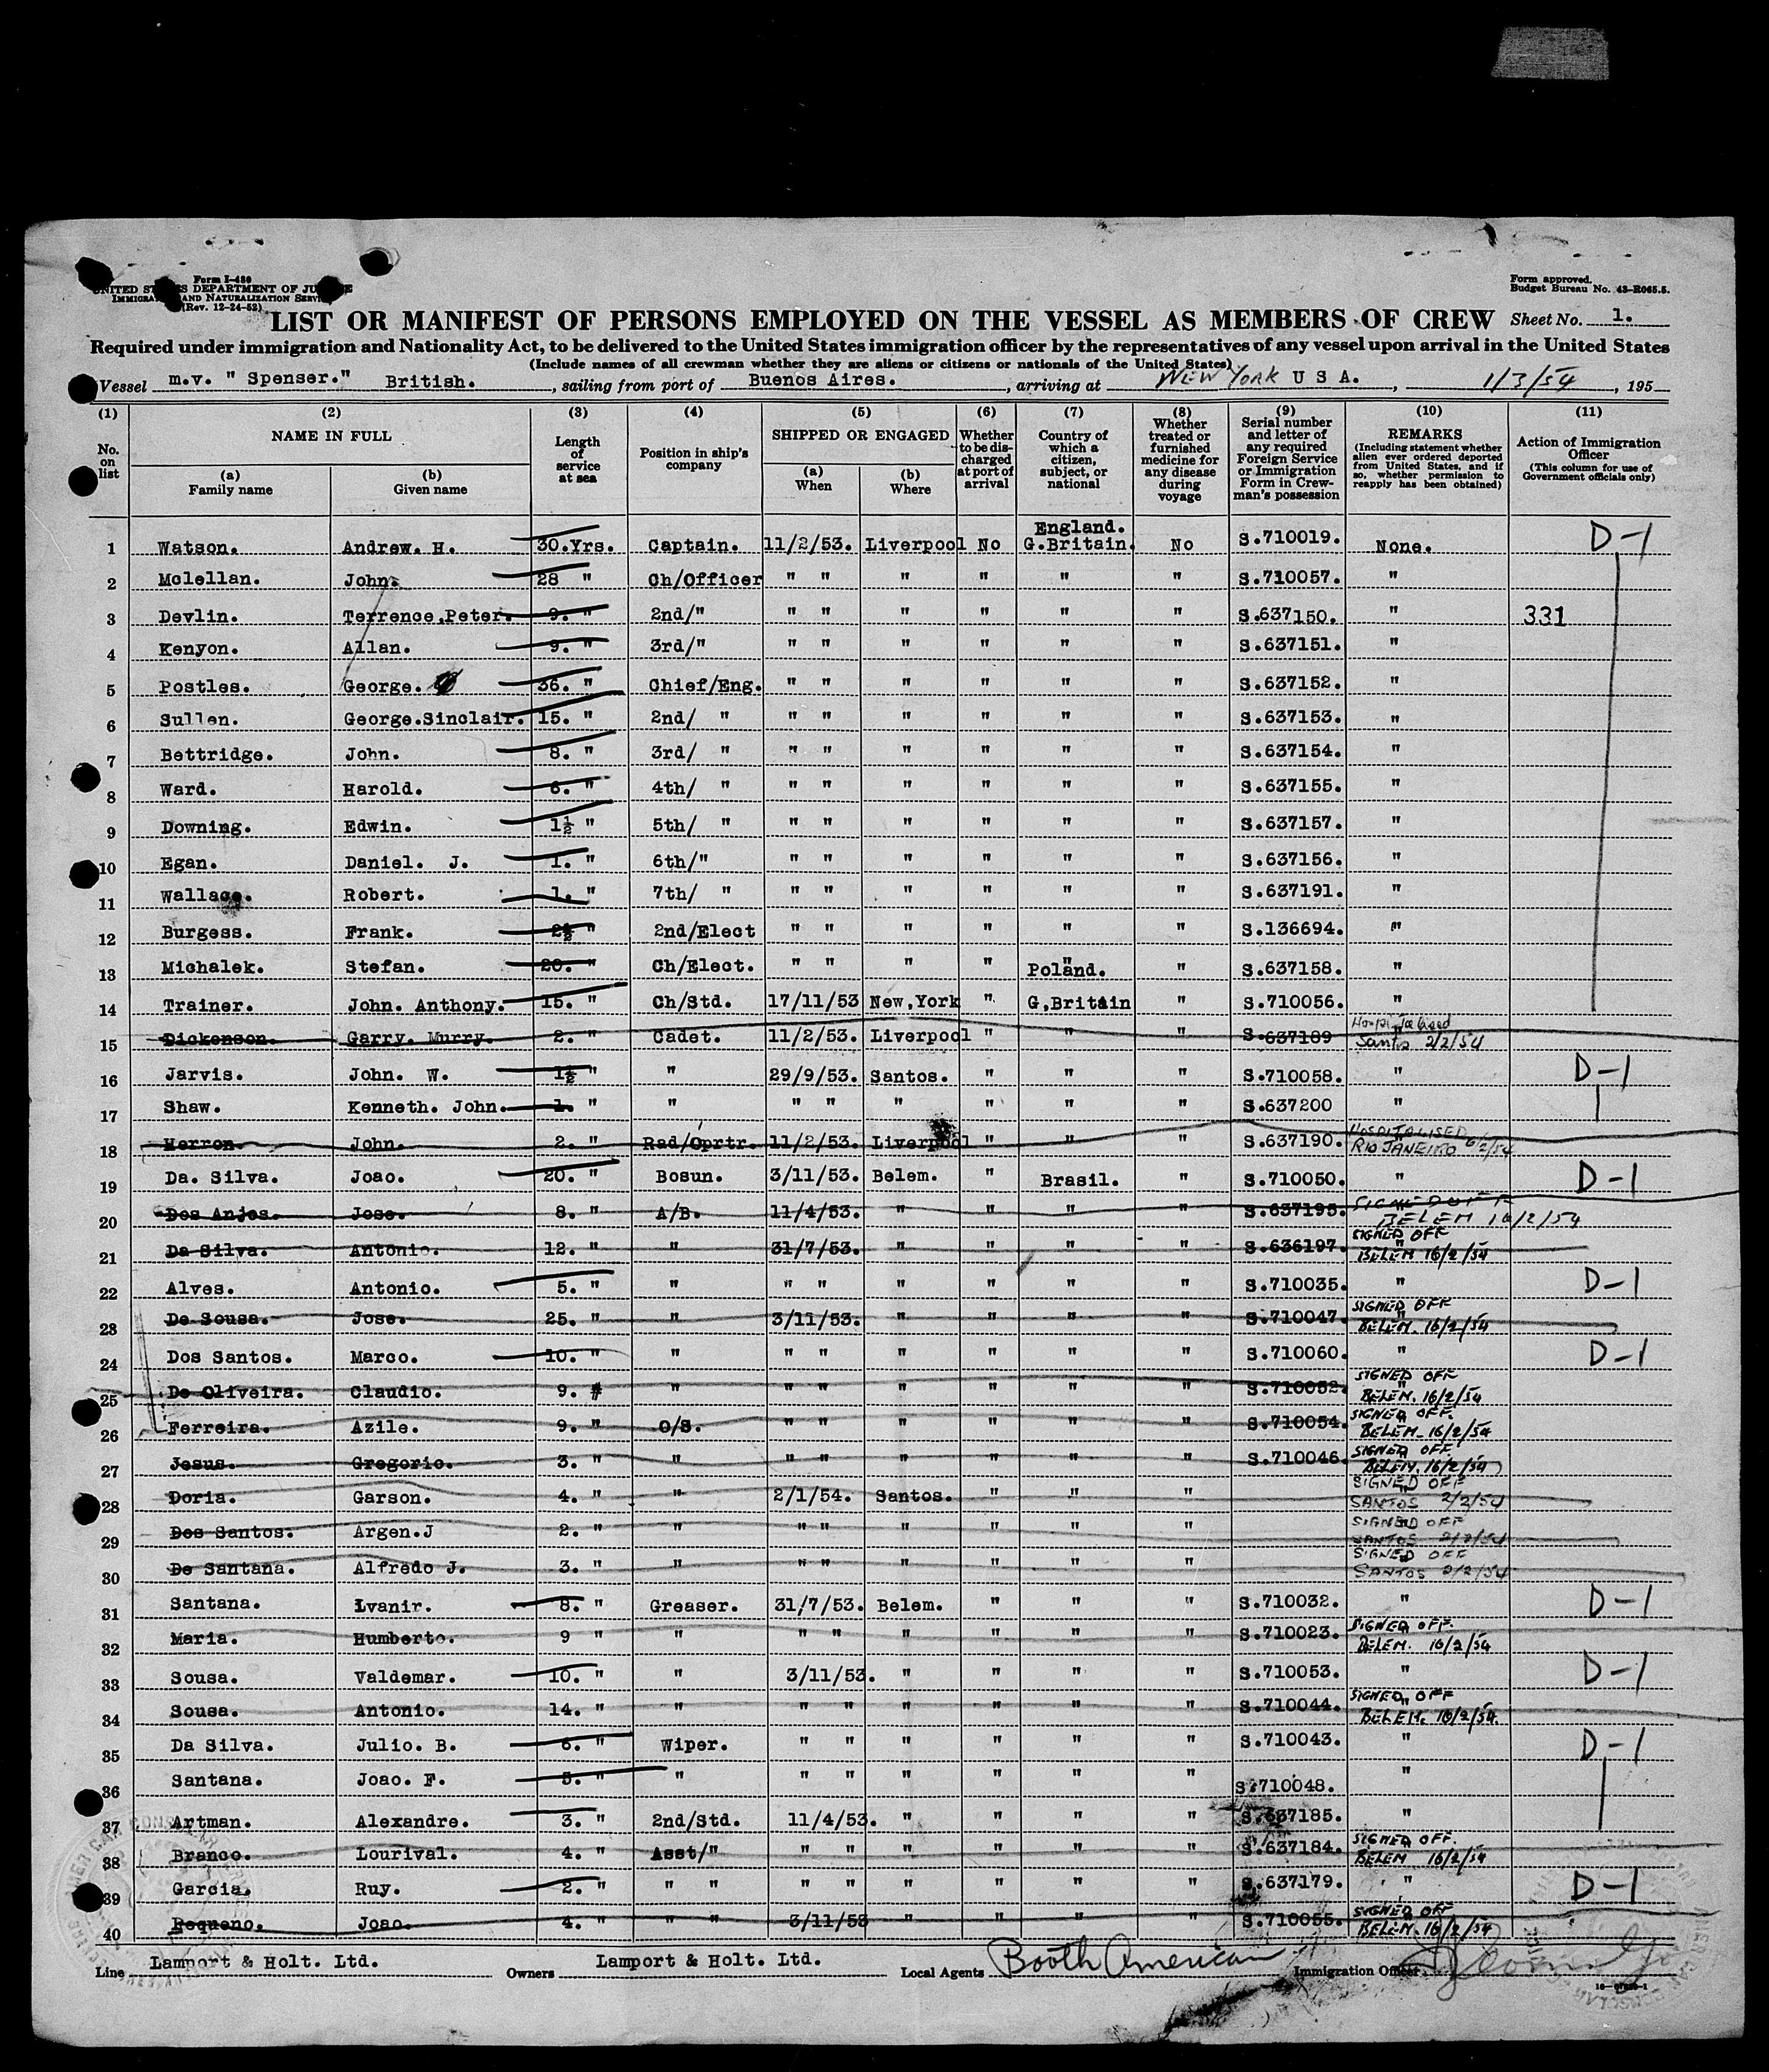 Form I-480
UNITED STATES DEPARTMENT OF JUSTICE
IMMIGRATION AND NATURALIZATION SERVICE
(Rev. 12-24-52)
Form approved.
Budget Bureau No. 43-R065.5.
LIST OR MANIFEST OF PERSONS EMPLOYED ON THE VESSEL AS MEMBERS OF CREW Sheet No. 1.
Required under immigration and Nationality Act, to be delivered to the United States immigration officer by the representatives of any vessel upon arrival in the United States
(Include names of all crewman whether they are aliens or citizens or nationals of the United States)
Vessel m.v. " Spenser." British. , sailing from port of Buenos Aires. , arriving at NEW YORK U S A. , 1/3/54 , 195
(1) No. on list
(2) NAME IN FULL
(a) Family name
(b) Given name
(3) Length of service at sea
(4) Position in ship's company
(5) SHIPPED OR ENGAGED
(a) When
(b) Where
(6) Whether to be discharged at port of arrival
(7) Country of which a citizen, subject, or national
(8) Whether treated or furnished medicine for any disease during voyage
(9) Serial number and letter of any required Foreign Service or Immigration Form in Crewman's possession
(10) REMARKS (Including statement whether alien ever ordered deported from United States, and if so, whether permission to reapply has been obtained)
(11) Action of Immigration Officer (This column for use of Government officials only)
1 Watson. Andrew. H. 30.Yrs. Captain. 11/2/53. Liverpool No England. G.Britain. No S.710019. None. D-1
2 Mclellan. John. 28 " Ch/Officer " " " " " " S.710057. "
3 Devlin. Terrence.Peter. 9. " 2nd/" " " " " " " S.637150. " 331
4 Kenyon. Allan. 9. " 3rd/" " " " " " " S.637151. "
5 Postles. George. 36. " Chief/Eng. " " " " " " S.637152. "
6 Sullen. George.Sinclair. 15. " 2nd/ " " " " " " " S.637153. "
7 Bettridge. John. 8. " 3rd/ " " " " " " " S.637154. "
8 Ward. Harold. 6. " 4th/ " " " " " " " S.637155. "
9 Downing. Edwin. 1½ " 5th/ " " " " " " " S.637157. "
10 Egan. Daniel. J. 1. " 6th/" " " " " " " S.637156. "
11 Wallace. Robert. 1. " 7th/ " " " " " " " S.637191. "
12 Burgess. Frank. 2½ " 2nd/Elect " " " " " " S.136694. "
13 Michalek. Stefan. 20. " Ch/Elect. " " " " Poland. " S.637158. "
14 Trainer. John. Anthony. 15. " Ch/Std. 17/11/53 New,York " G,Britain " S.710056. "
15 Dickenson. Garry. Murry. 2. " Cadet. 11/2/53. Liverpool " " " S.637189 Hospitalised Santos 2/2/54
16 Jarvis. John. W. 1½ " " 29/9/53. Santos. " " " S.710058. " D-1
17 Shaw. Kenneth. John. 1. " " " " " " " " S.637200 "
18 Herron. John. 2. " Rad/Oprtr. 11/2/53. Liverpool " " " S.637190. HOSPITALISED RIO JANEIRO 6/2/54
19 Da. Silva. Joao. 20. " Bosun. 3/11/53. Belem. " Brasil. " S.710050. " D-1
20 Dos Anjos. Jose. 8. " A/B. 11/4/53. " " " " S.637195. SIGNED OFF BELEM 16/2/54
21 Da Silva. Antonio. 12. " " 31/7/53. " " " " S.636197. SIGNED OFF BELEM 16/2/54
22 Alves. Antonio. 5. " " " " " " " " S.710035. " D-1
23 De Sousa. Jose. 25. " " 3/11/53. " " " " S.710047. SIGNED OFF BELEM. 16/2/54
24 Dos Santos. Marco. 10. " " " " " " " " S.710060. " D-1
25 De Oliveira. Claudio. 9. " " " " " " " " S.710052. SIGNED OFF BELEM. 16/2/54
26 Ferreira. Azile. 9. " O/S. " " " " " " S.710054. SIGNED OFF. BELEM. 16/2/54
27 Jesus. Gregorio. 3. " " " " " " " " S.710046. SIGNED OFF. BELEM. 16/2/54
28 Doria. Garson. 4. " " 2/1/54. Santos. " " " SIGNED OFF SANTOS 2/2/54
29 Dos Santos. Argen.J 2. " " " " " " " " SIGNED OFF SANTOS 2/2/54
30 De Santana. Alfredo J. 3. " " " " " " " " SIGNED OFF SANTOS 2/2/54
31 Santana. Lvanir. 8. " Greaser. 31/7/53. Belem. " " " S.710032. " D-1
32 Maria. Humberto. 9 " " " " " " " " S.710023. SIGNED OFF. BELEM. 16/2/54
33 Sousa. Valdemar. 10. " " 3/11/53. " " " " S.710053. " D-1
34 Sousa. Antonio. 14. " " " " " " " " S.710044. SIGNED OFF BELEM. 16/2/54.
35 Da Silva. Julio. B. 6. " Wiper. " " " " " " S.710043. " D-1
36 Santana. Joao. F. 5. " " " " " " " " S.710048. "
37 Artman. Alexandre. 3. " 2nd/Std. 11/4/53. " " " " S.637185. "
38 Branco. Lourival. 4. " Asst/" " " " " " " S.637184. SIGNED OFF. BELEM 16/2/54
39 Garcia. Ruy. 2. " " " " " " " " " S.637179. " D-1
40 Pequeno. Joao. 4. " " " 3/11/53 " " " " S.710055. SIGNED OFF BELEM. 16/2/54
Line Lamport & Holt. Ltd. Owners Lamport & Holt. Ltd. Local Agents Booth American Immigration Officer